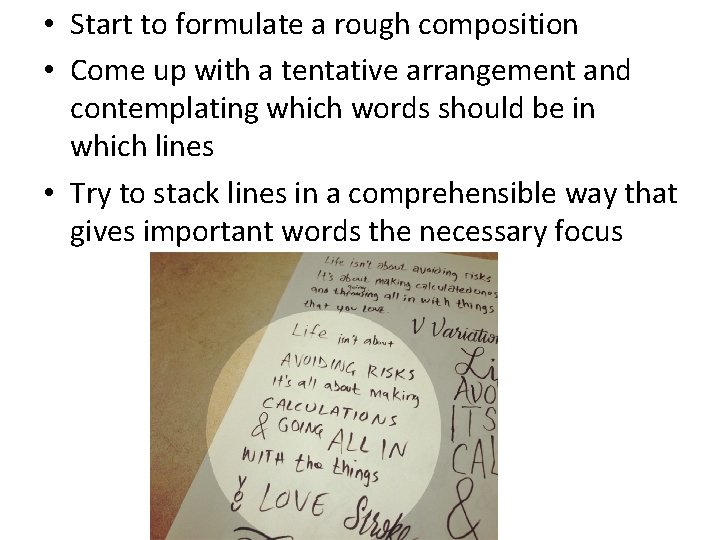 • Start to formulate a rough composition
• Come up with a tentative arrangement and
contemplating which words should be in
which lines
• Try to stack lines in a comprehensible way that
gives important words the necessary focus
Life isn't about avoiding risks
It's about making calculated ones
going
and all in with things
that you love.
V Variation
Life isn't about
AVOIDING RISKS
It's all about making
CALCULATIONS
& GOING ALL IN
WITH the things
you LOVE
Stroke
Li
AVO
ITS
CAL
&